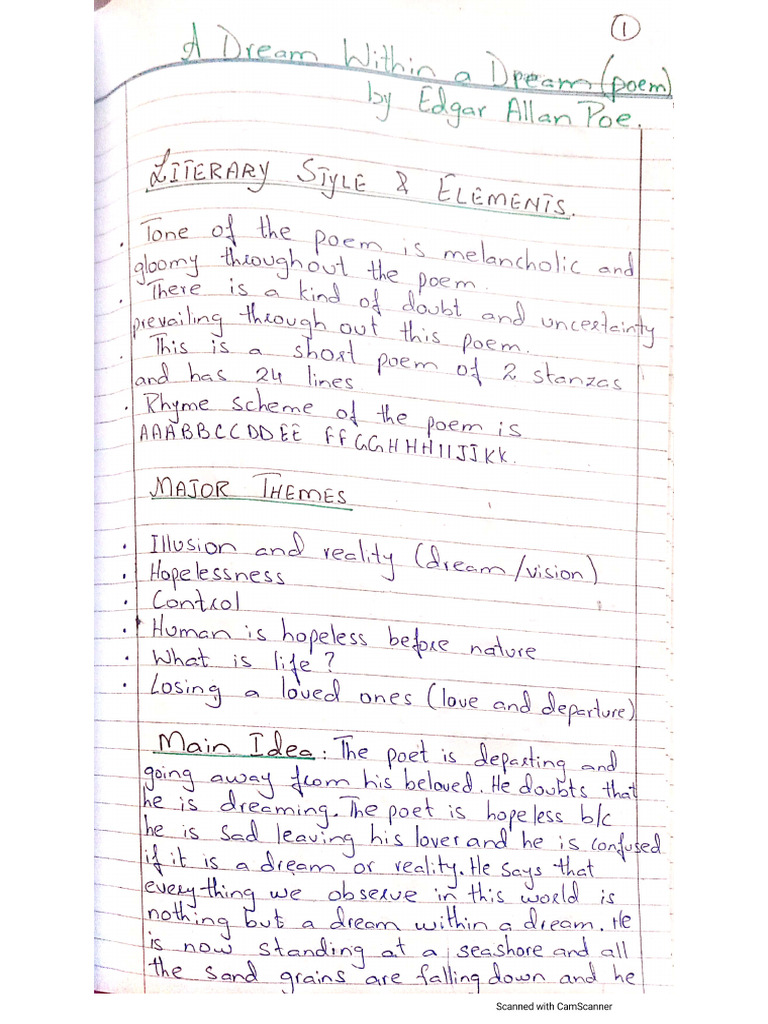 1
A Dream Within a Dream (poem)
by Edgar Allan Poe.
LITERARY STYLE & ELEMENTS.
. Tone of the poem is melancholic and
gloomy throughout the poem.
. There is a kind of doubt and uncertainty
prevailing through out this poem.
. This is a short poem of 2 stanzas
and has 24 lines
. Rhyme scheme of the poem is
AAABBCCDDEE FFGGHHHIIJJKK.
MAJOR THEMES
. Illusion and reality (dream/vision)
. Hopelessness
. Control
. Human is hopeless before nature
. What is life?
. Losing a loved ones (love and departure)
Main Idea: The poet is departing and
going away from his beloved. He doubts that
he is dreaming. The poet is hopeless b/c
he is sad leaving his lover and he is confused
if it is a dream or reality. He says that
everything we observe in this world is
nothing but a dream within a dream. He
is now standing at a seashore and all
the sand grains are falling down and he
Scanned with CamScanner